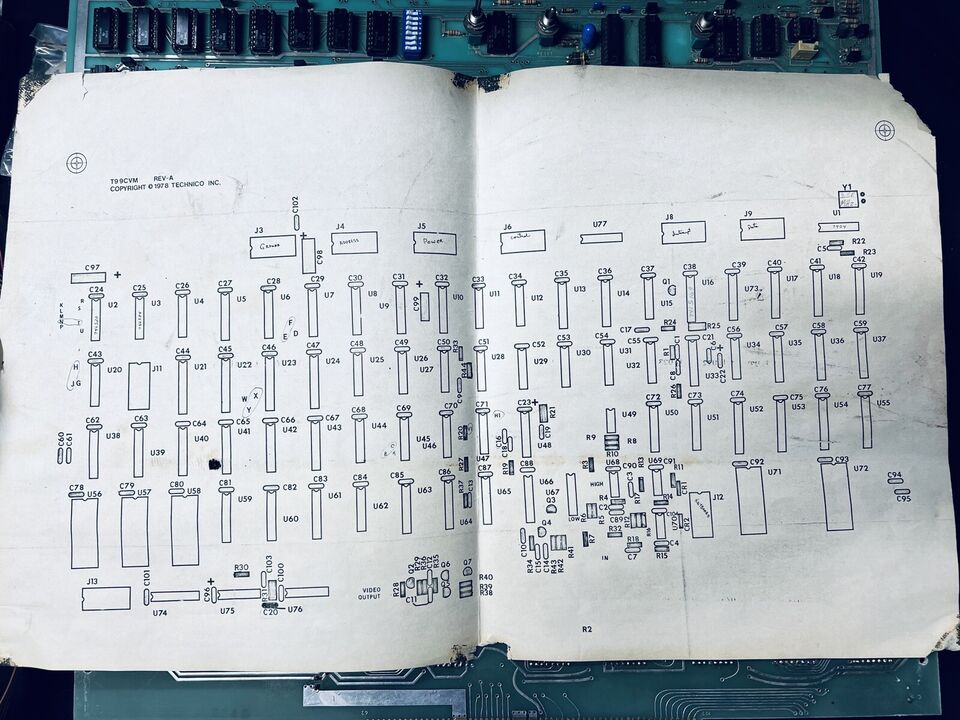 T99CVM REV-A
COPYRIGHT © 1978 TECHNICO INC.
Y1
C102
J3 J4 J5 J6 U77 J8 J9 U1
Ground Address Power control Interrupt Data 7404
C98
R22
C5 R23
C97 +
C24 C25 C26 C27 C28 C29 C30 C31 C32 C33 C34 C35 C36 C37 C38 C39 C40 C41 C42
K L M N P R S T U
U2 U3 U4 U5 U6 U7 U8 U9 U10 U11 U12 U13 U14 U15 U16 U73 U17 U18 U19
C99 Q1
F D E
C17 R24 R25
C43 C44 C45 C46 C47 C48 C49 C50 C51 C52 C53 C54 C55 C56 C57 C58 C59
H J G
U20 J11 U21 U22 U23 U24 U25 U26 U27 U28 U29 U30 U31 U32 U33 U34 U35 U36 U37
R1 C1 C8 R26 C21 C6 C22
C9
W X Y
C62 C63 C64 C65 C66 C67 C68 C69 C70 C71 C23 C72 C73 C74 C75 C76 C77
C60 C61
U38 U39 U40 U41 U42 U43 U44 U45 U46 U47 U48 U49 U50 U51 U52 U53 U54 U55
R20 C16 C18 C19 R21 R19 R27
R9 R8 R10
C78 C79 C80 C81 C82 C83 C84 C85 C86 C87 C88 U68 C90 U69 C91 C92 C93 C94
U56 U57 U58 U59 U60 U61 U62 U63 U64 U65 U66 U67 U71 U72 C95
R37 C13 R3 HIGH R13 R11 CR1 R17 R14
Q3 LOW R6 R4 C2 R5 C89 R12 R16 J12
Q4 R32 CR2
C10 R34 C15 C14 R43 R42 R41 R7 IN R18 C7 C4 R15
J13 C101 C96 R30 C103 C100 R31 C20
U74 U75 U76
VIDEO
OUTPUT
R28 Q2 R29 R36 C12 R35 Q6 C11 Q7 R40
R39
R38
R2